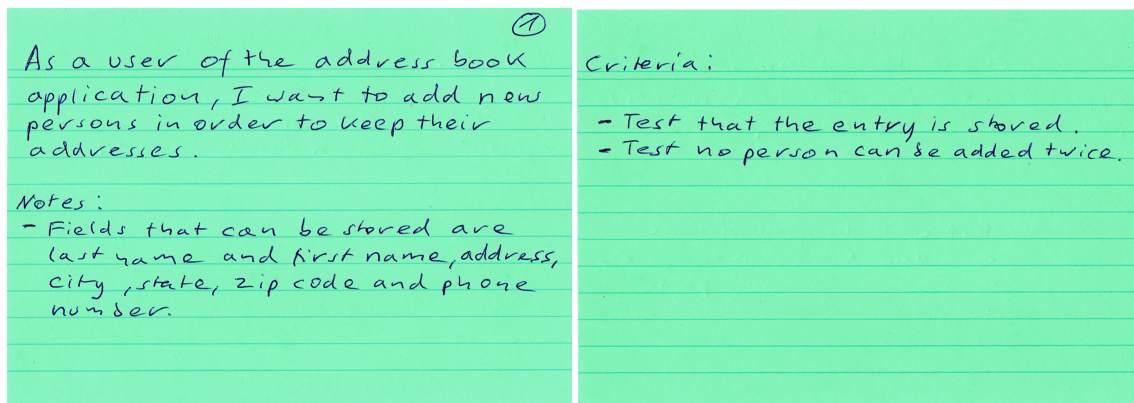 1
As a user of the address book
application, I want to add new
persons in order to keep their
addresses.
Notes:
- Fields that can be stored are
last name and first name, address,
city, state, zip code and phone
number.
Criteria:
- Test that the entry is stored.
- Test no person can be added twice.